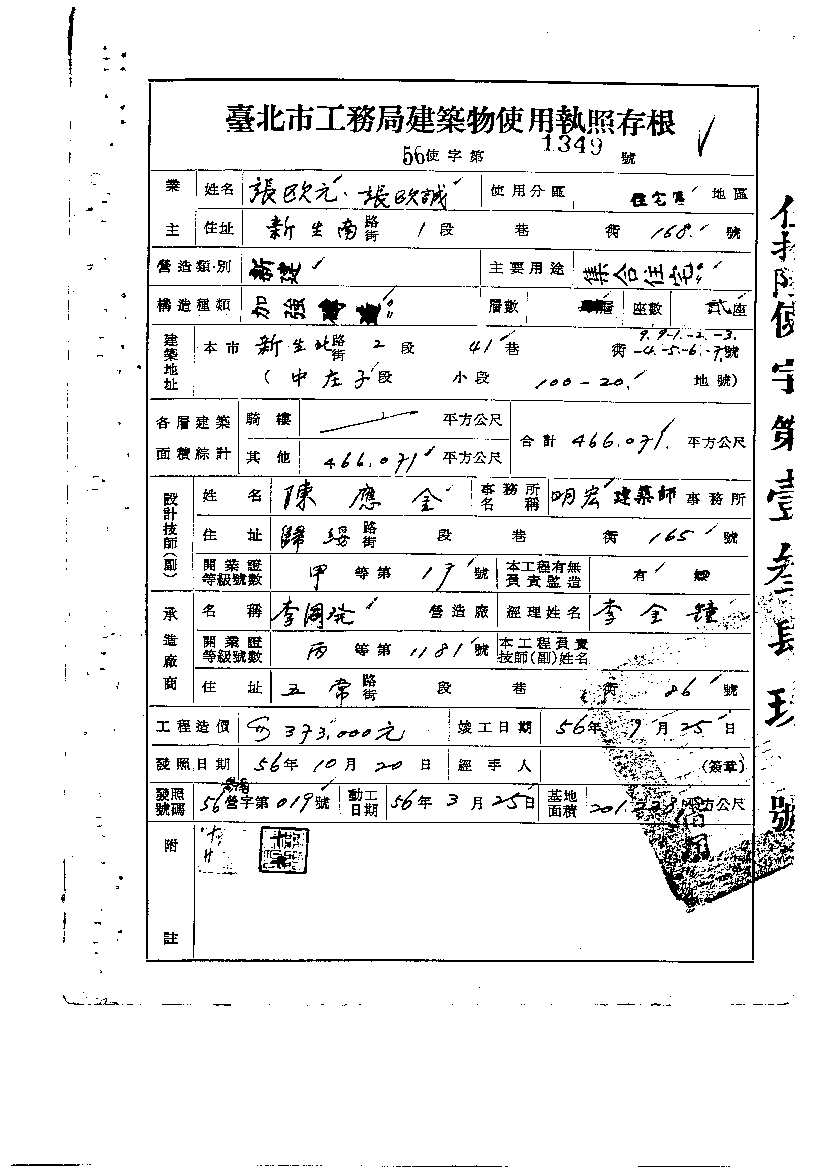 臺北市工務局建築物使用執照存根
56使字第 1349 號
業主 姓名 張欧元、張欧誠 使用分區 住宅區 地區
住址 新生南路街 1段 巷 街 168 號
營造類別 新建 主要用途 集合住宅
構造種類 加強磚造 層數 層 座數 貳座
建築地址 本市 新生北路街 2段 41巷 街 9.9-1.-2.-3.-4.-5.-6.-7.號
(中庄子段 小段 100-20. 地號)
各層建築面積綜計 騎樓 平方公尺 合計 466.071. 平方公尺
其他 466.071 平方公尺
設計技師(副) 姓名 陳應全 事務所名稱 明宏建築師事務所
住址 歸綏路街 段 巷 街 165 號
開業證等級號數 甲等第 17 號 本工程有無負責監造 有
承造廠商 名稱 李國発 營造廠 經理姓名 李全鐘
開業證等級號數 丙等第 1181 號 本工程負責技師(副)姓名
住址 五常路街 段 巷 街 86 號
工程造價 373,000元 竣工日期 56年9月25日
發照日期 56年10月20日 經手人 (簽章)
發照號碼 56營字第019號 動工日期 56年3月25日 基地面積 平方公尺
附註
伍拾陸使字第壹叁肆玖號